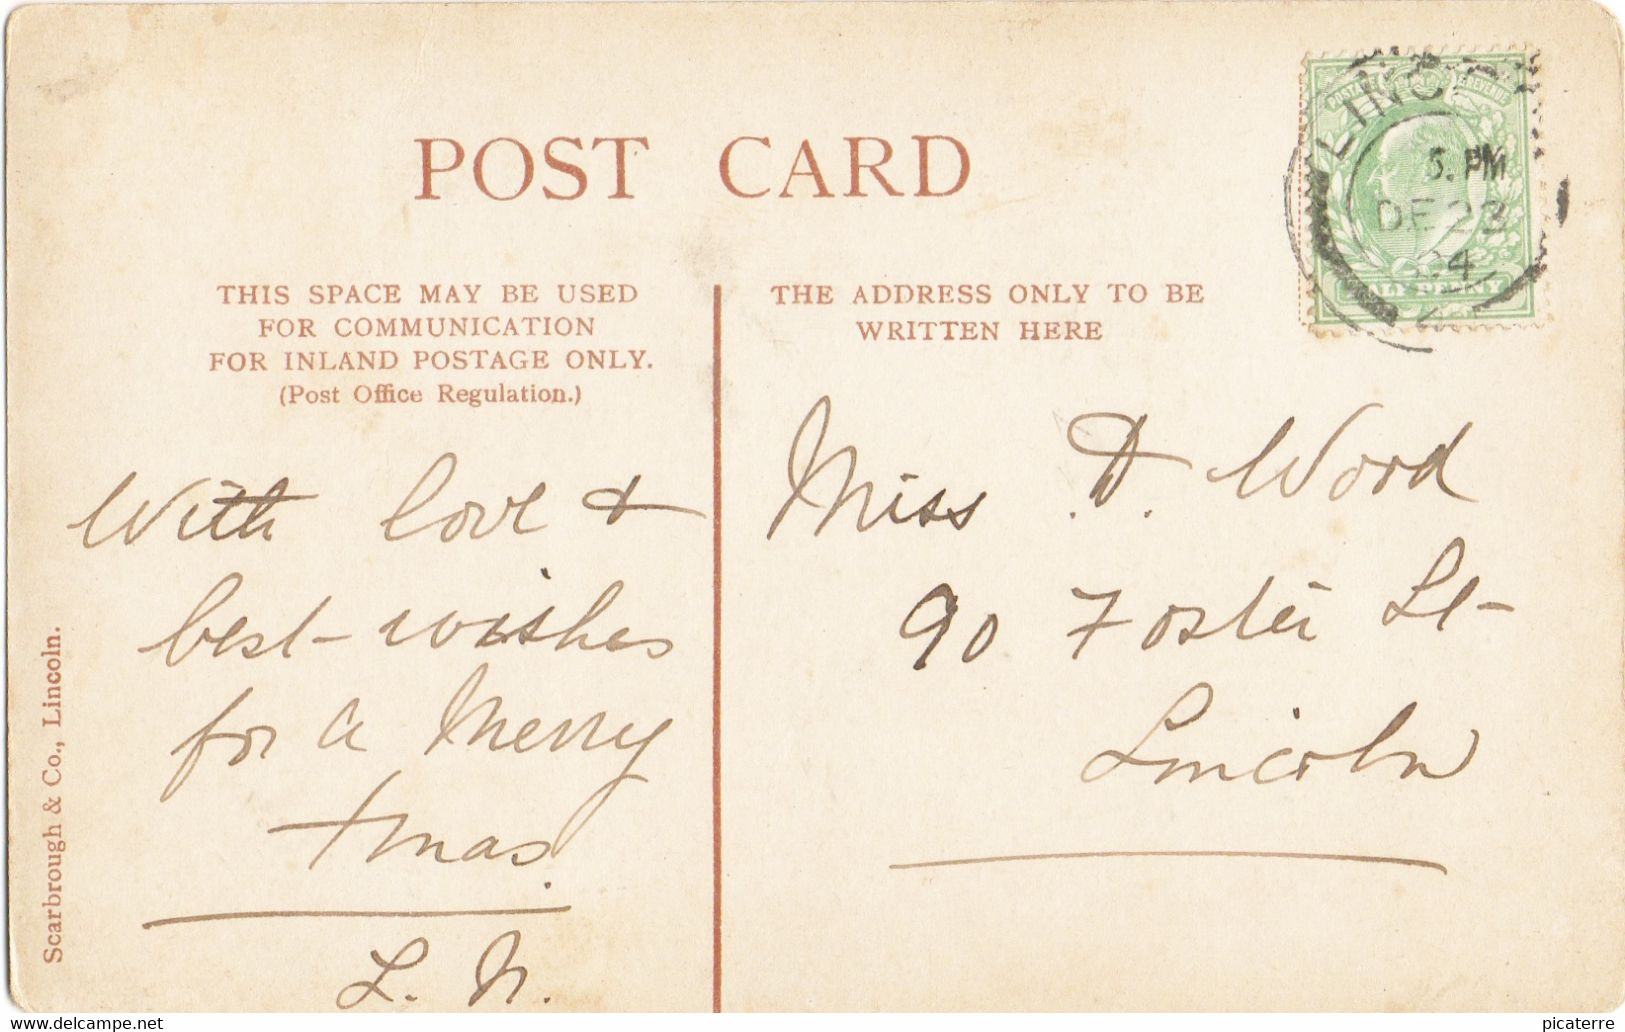 POST CARD
THIS SPACE MAY BE USED
FOR COMMUNICATION
FOR INLAND POSTAGE ONLY.
(Post Office Regulation.)
With love &
best wishes
for a Merry
Xmas.
L. N.
Scarbrough & Co., Lincoln.
THE ADDRESS ONLY TO BE
WRITTEN HERE
Miss D. Wood
90 Foster St
Lincoln
POSTAGE & REVENUE
5. PM
DE 23
04
www.delcampe.net
picaterre